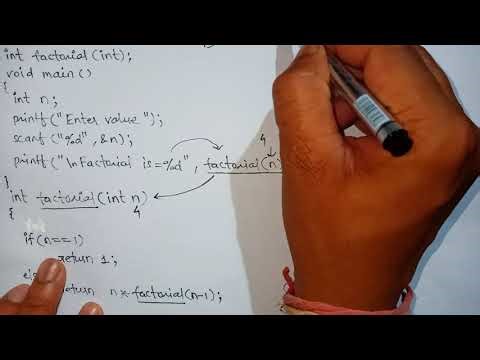 int factorial(int);
void main()
{
int n;
printf("Enter value");
scanf("%d", &n);
4
printf("\nFactorial is=%d", factorial(n)
}
int factorial(int n)
4
{
if(n==1)
return 1;
return n*factorial(n-1);